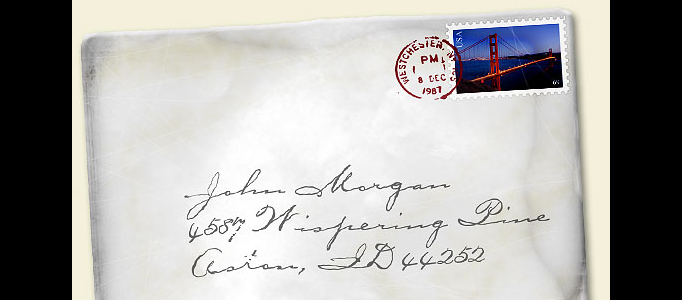 USA
WESTCHESTER, N
PM
8 DEC
1987
John Morgan
Wispering Pine
Aston, ID 44252